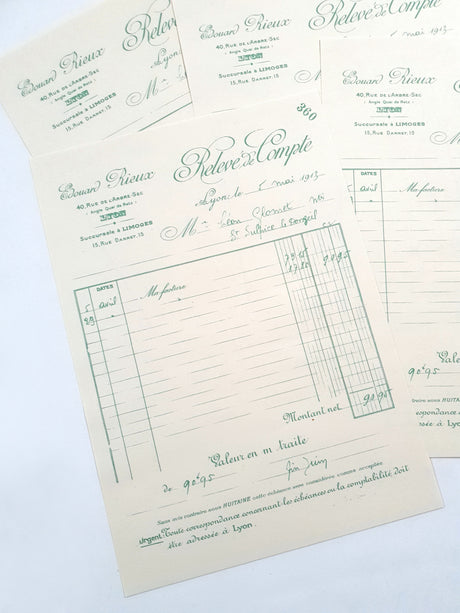 Relevé
Lyon
40, RUE DE L'ARBRE-SEC
Angle Quai de Retz
LYON
Succursale à LIMOGES
15, RUE DARNET, 15
M
Edouard Rieux
40, RUE DE L'ARBRE-SEC
Angle Quai de Retz
LYON
Succursale à LIMOGES
15, RUE DARNET, 15
Relevé de Compte
mai 1913
M
Edouard Rieux
40, RUE DE L'ARBRE-SEC
Angle Quai de Retz
LYON
Succursale à LIMOGES
15, RUE DARNET, 15
DATES
5 avril Ma facture
90f95
360
Edouard Rieux
40, RUE DE L'ARBRE-SEC
Angle Quai de Retz
LYON
Succursale à LIMOGES
15, RUE DARNET, 15
Relevé de Compte
Lyon, le 1 mai 1913
M Léon
St Sulpice le
DATES
5 avril Ma facture
29
90 95
Montant net 90 95
Valeur en m traite
de 90f95 fin Juin
Sans avis contraire sous HUITAINE cette échéance sera considérée comme acceptée
Urgent: Toute correspondance concernant les échéances ou la comptabilité doit
être adressée à Lyon.